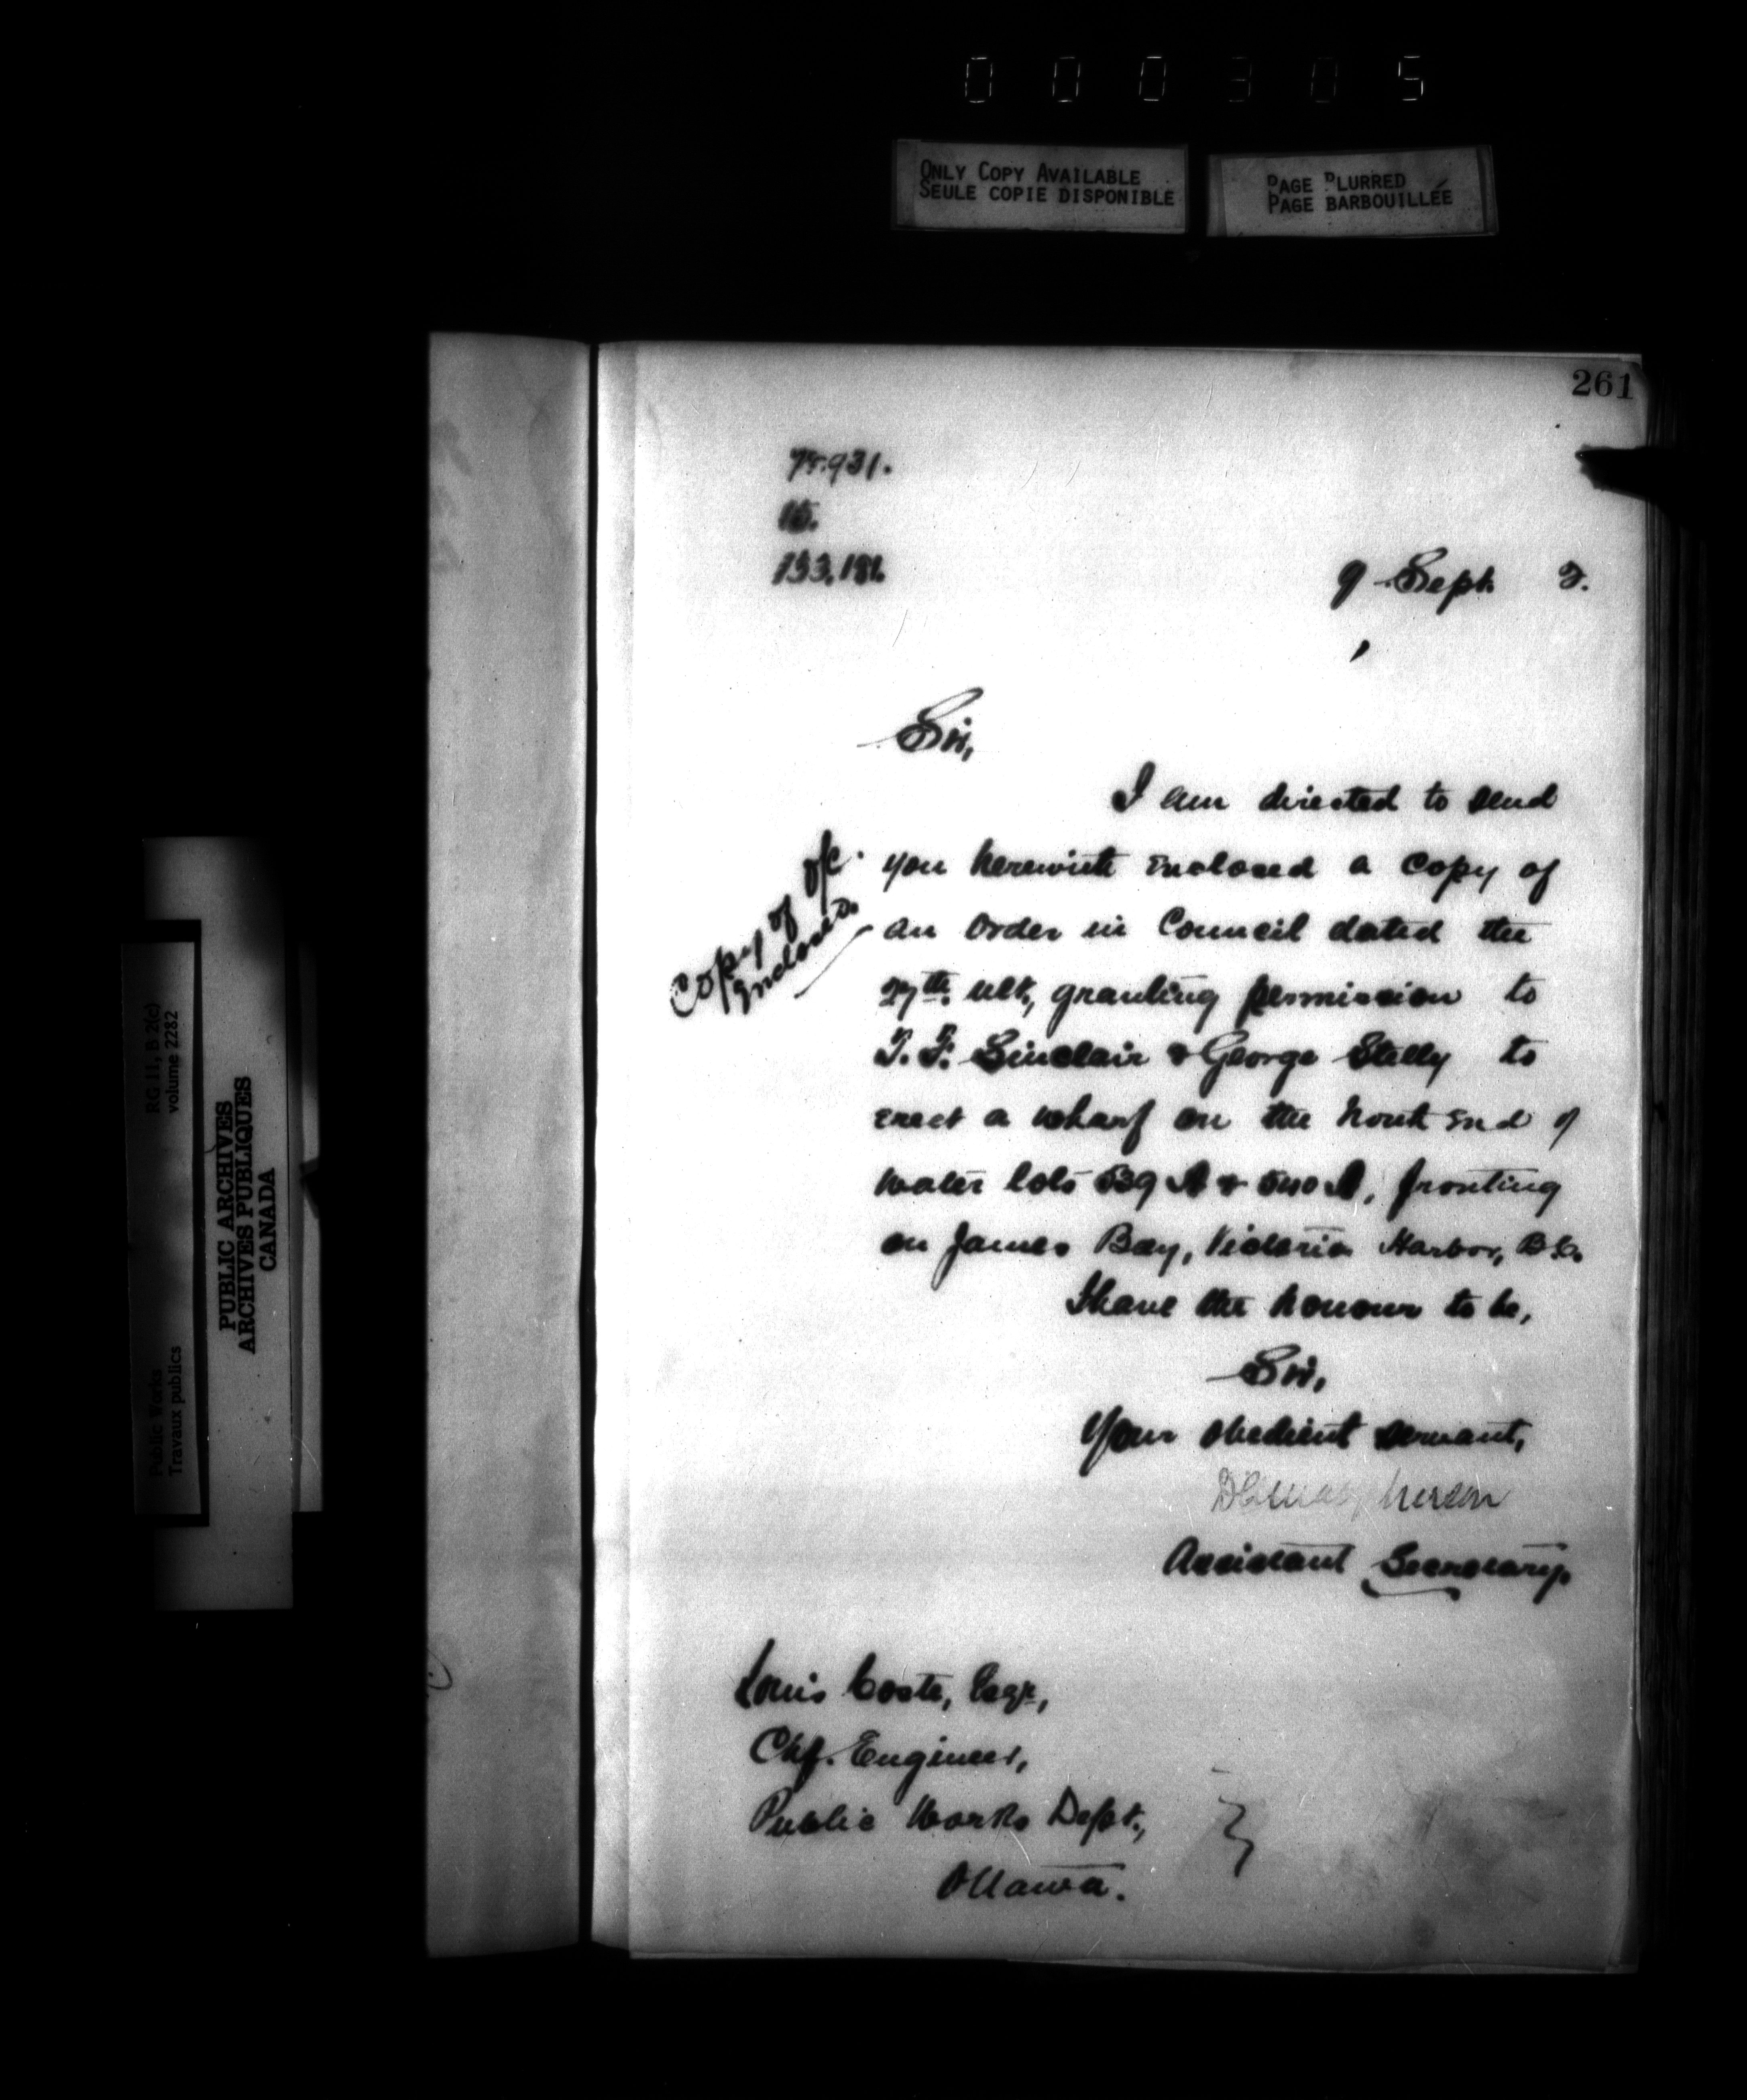 000305
ONLY COPY AVAILABLE
SEULE COPIE DISPONIBLE
PAGE BLURRED
PAGE BARBOUILLÉE
261
133.181.
9 Sept. 2.
Sir,
I am directed to send
you herewith inclosed a copy of
an Order in Council dated the
27th. ult., granting permission to
T. F. Sinclair & George Stelly to
erect a wharf on the north end of
water lots 539 A & 540 A, fronting
on James Bay, Victoria Harbor, B.C.
I have the honour to be,
Sir,
Your obedient servant,
Assistant Secretary.
Copy of O/C.
Enclosed.
Louis Coste, Esqr.,
Chf. Engineer,
Public Works Dept.,
Ottawa.
RG 11, B 2(c)
volume 2282
Public Works
Travaux publics
PUBLIC ARCHIVES
ARCHIVES PUBLIQUES
CANADA